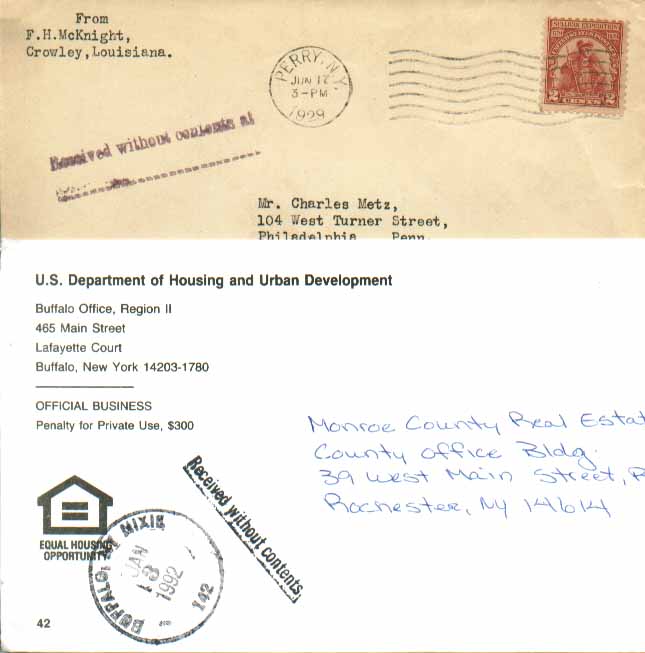 From
F.H.McKnight,
Crowley,Louisiana.
PERRY, N.Y.
JUN 17
3-PM
1929
SULLIVAN EXPEDITION
2 2
Received without contents at
Mr. Charles Metz,
104 West Turner Street,
Philadelphia Penn.
U.S. Department of Housing and Urban Development
Buffalo Office, Region II
465 Main Street
Lafayette Court
Buffalo, New York 14203-1780
OFFICIAL BUSINESS
Penalty for Private Use, $300
Monroe County Real Estat
County Office Bldg.
39 West Main Street, R
Rochester, NY 14614
Received without contents
EQUAL HOUSING
OPPORTUNITY
BUFFALO, NY MIXIE
JAN
3
1992
142
42